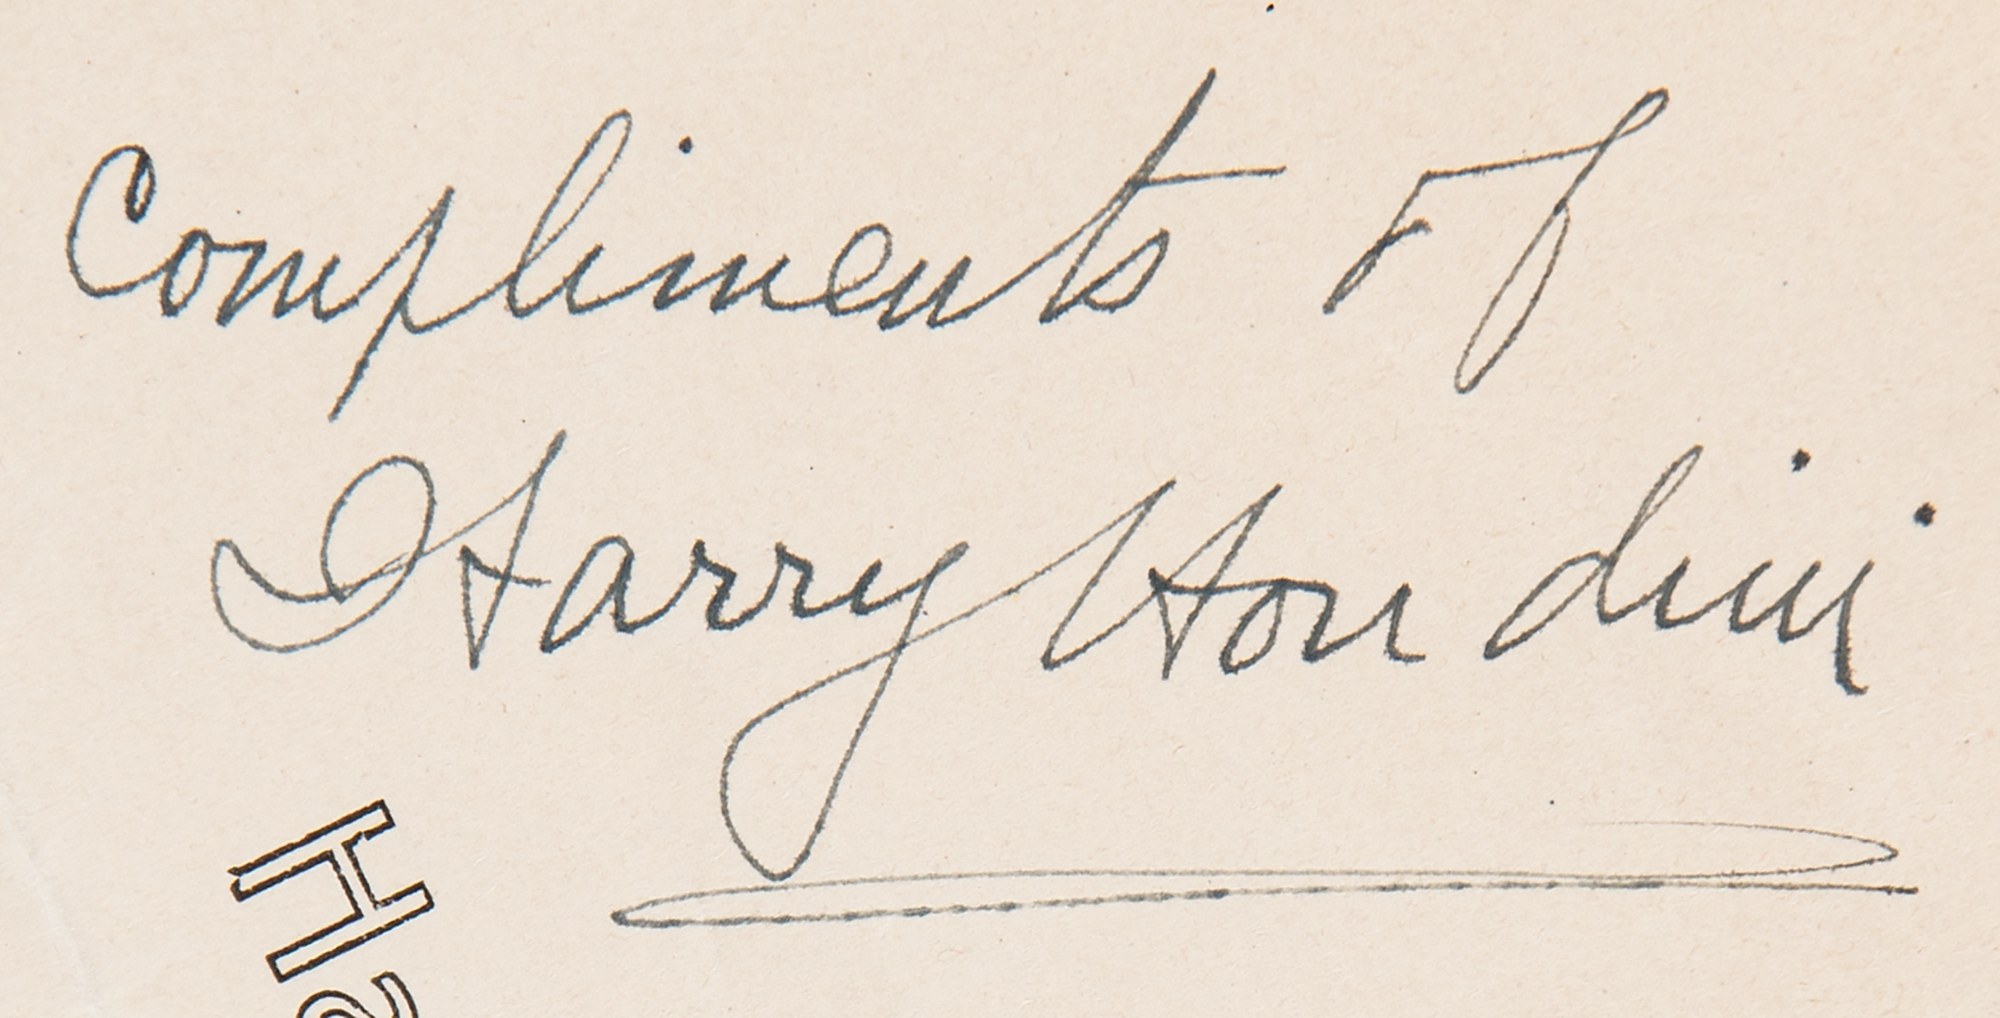 Compliments of
Harry Houdini
Ha